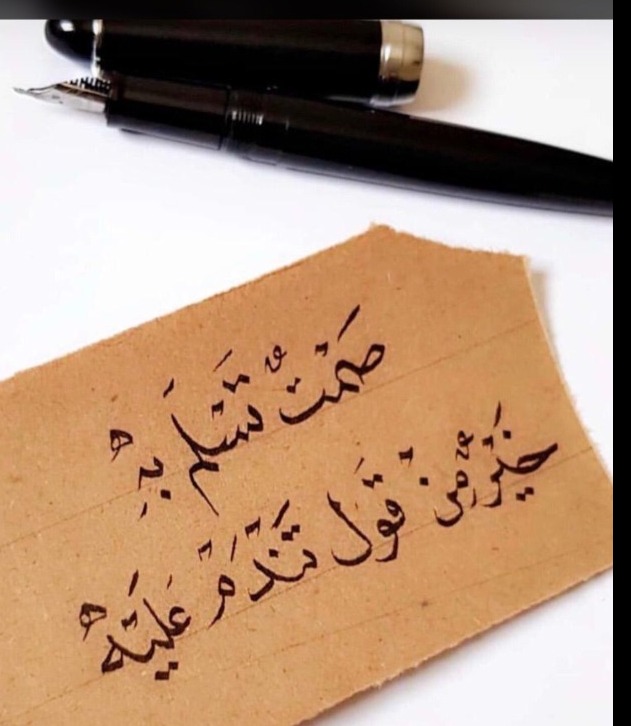 صَمْتٌ تَسْلَم بِهِ
خَيْرٌ مِنْ قَول تَنْدَمْ عَلَيْه